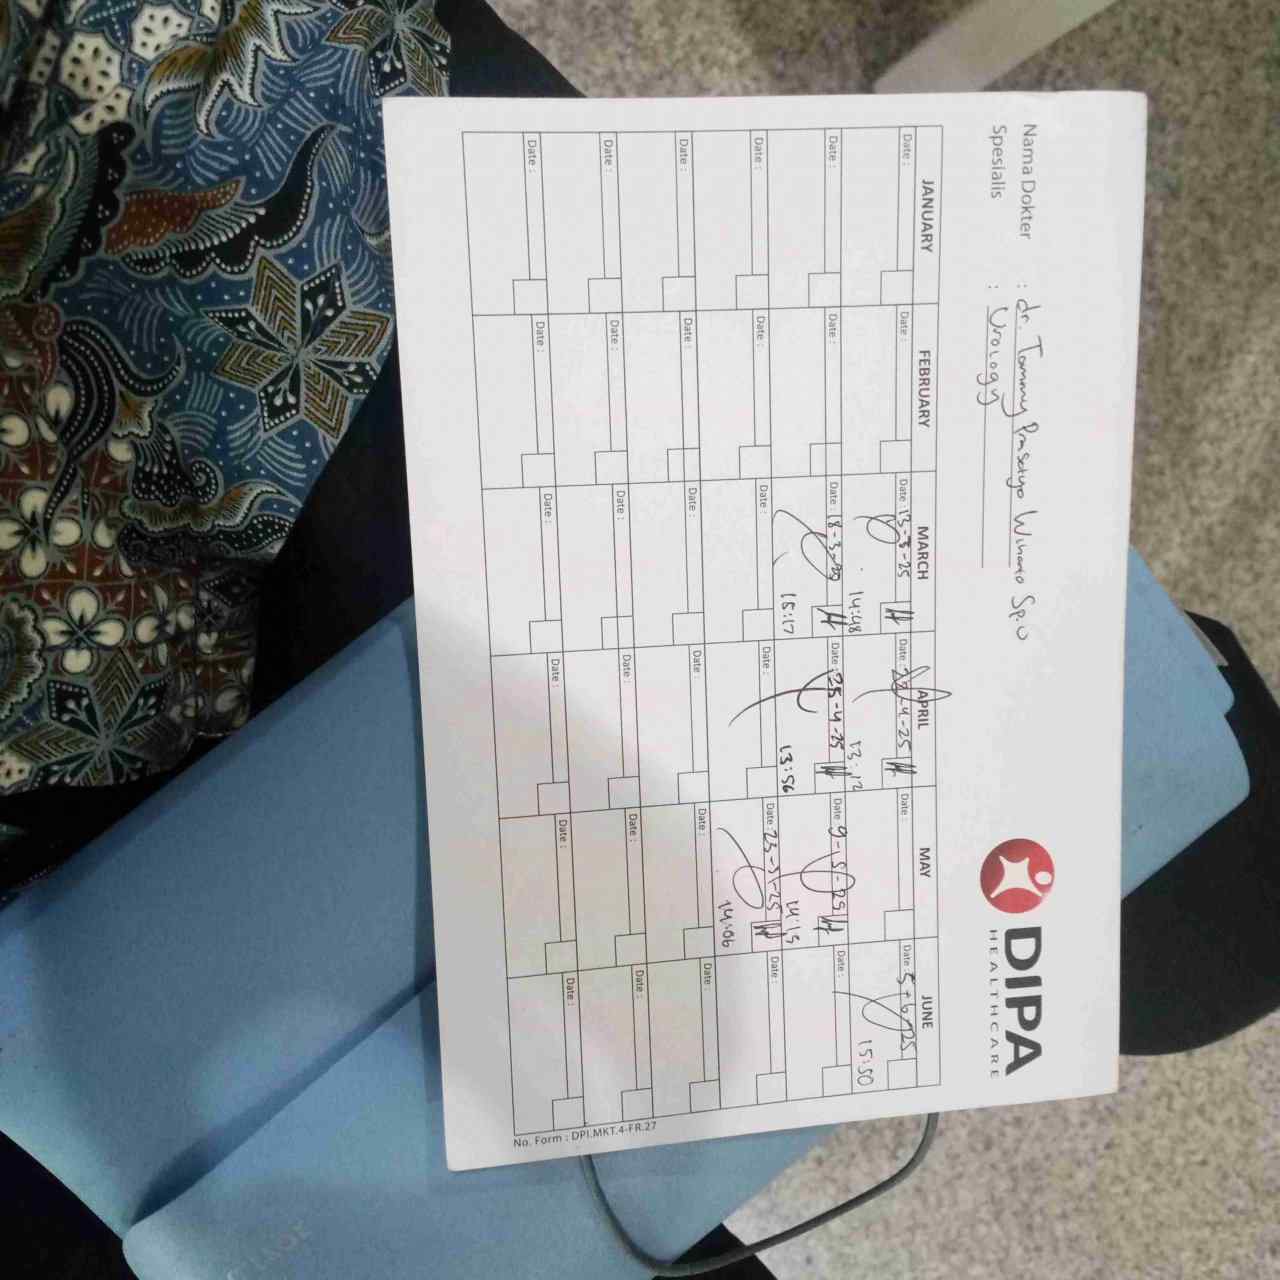 DIPA
HEALTHCARE
Nama Dokter : dr. Tommy Prasetyo Wibowo Sp.U
Spesialis : Urology
JANUARY FEBRUARY MARCH APRIL MAY JUNE
Date : Date : Date : 13-3-25 Date : 22-4-25 Date : Date : 5-6-25
14:48 13:12 15:50
Date : Date : Date : 18-3-25 Date : 25-4-25 Date : 9-5-25 Date :
15:17 13:56 14:15
Date : Date : Date : Date : Date : 23-5-25 Date :
14:06
Date : Date : Date : Date : Date : Date :
Date : Date : Date : Date : Date : Date :
Date : Date : Date : Date : Date : Date :
No. Form : DPI.MKT.4-FR.27